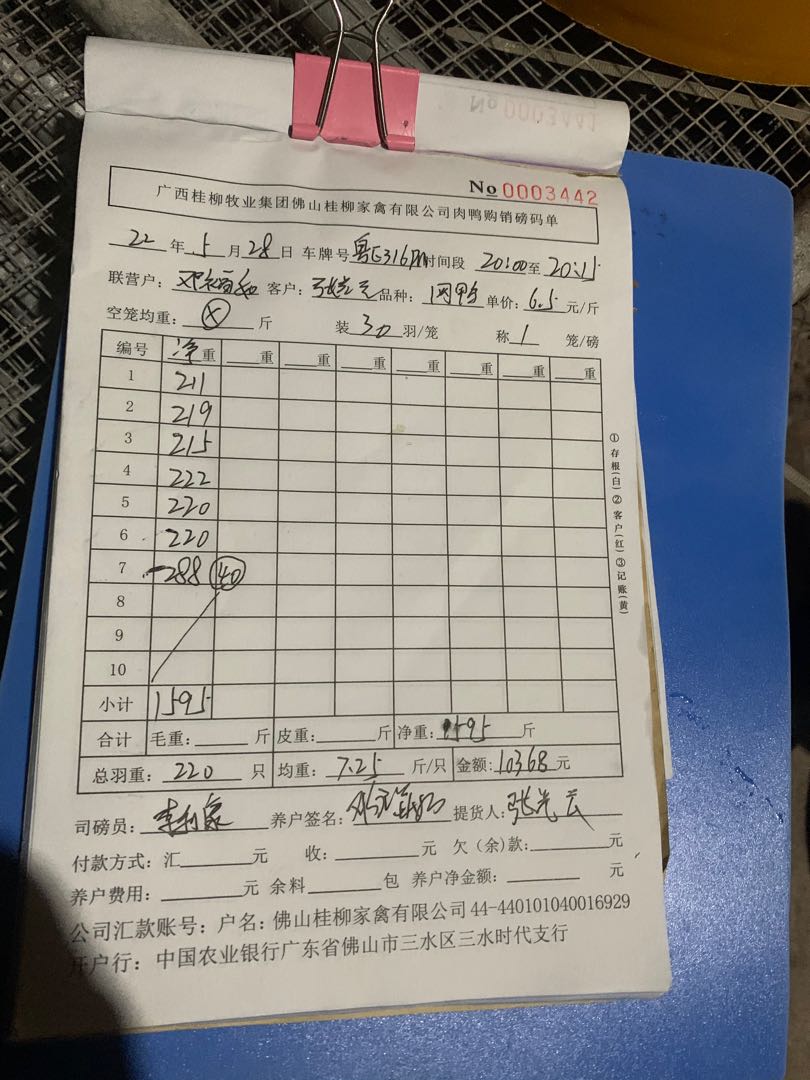 No 0003441
No 0003442
广西桂柳牧业集团佛山桂柳家禽有限公司肉鸭购销磅码单
22 年 5 月 28 日 车牌号 粤E316M 时间段 20:00 至 20:15
联营户: 邓福和 客户: 张光云 品种: 网鸭 单价: 6.5 元/斤
空笼均重: X 斤 装 30 羽/笼 称 1 笼/磅
编号 净重 重 重 重 重 重 重 重
1 211
2 219
3 215
4 222
5 220
6 220
7 288 40
8
9
10
小计 1595
合计 毛重: 斤 皮重: 斤 净重: 1595 斤
总羽重: 220 只 均重: 7.25 斤/只 金额: 10368 元
司磅员: 李利家 养户签名: 提货人: 张光云
付款方式: 汇 元 收: 元 欠(余)款: 元
养户费用: 元 余料 包 养户净金额: 元
公司汇款账号: 户名: 佛山桂柳家禽有限公司 44-440101040016929
开户行: 中国农业银行广东省佛山市三水区三水时代支行
①存根(白)②客户(红)③记账(黄)